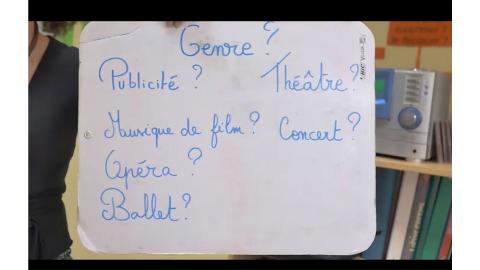 Genre ?
Publicité ? Théâtre ?
Musique de film ? Concert ?
Opéra ?
Ballet ?